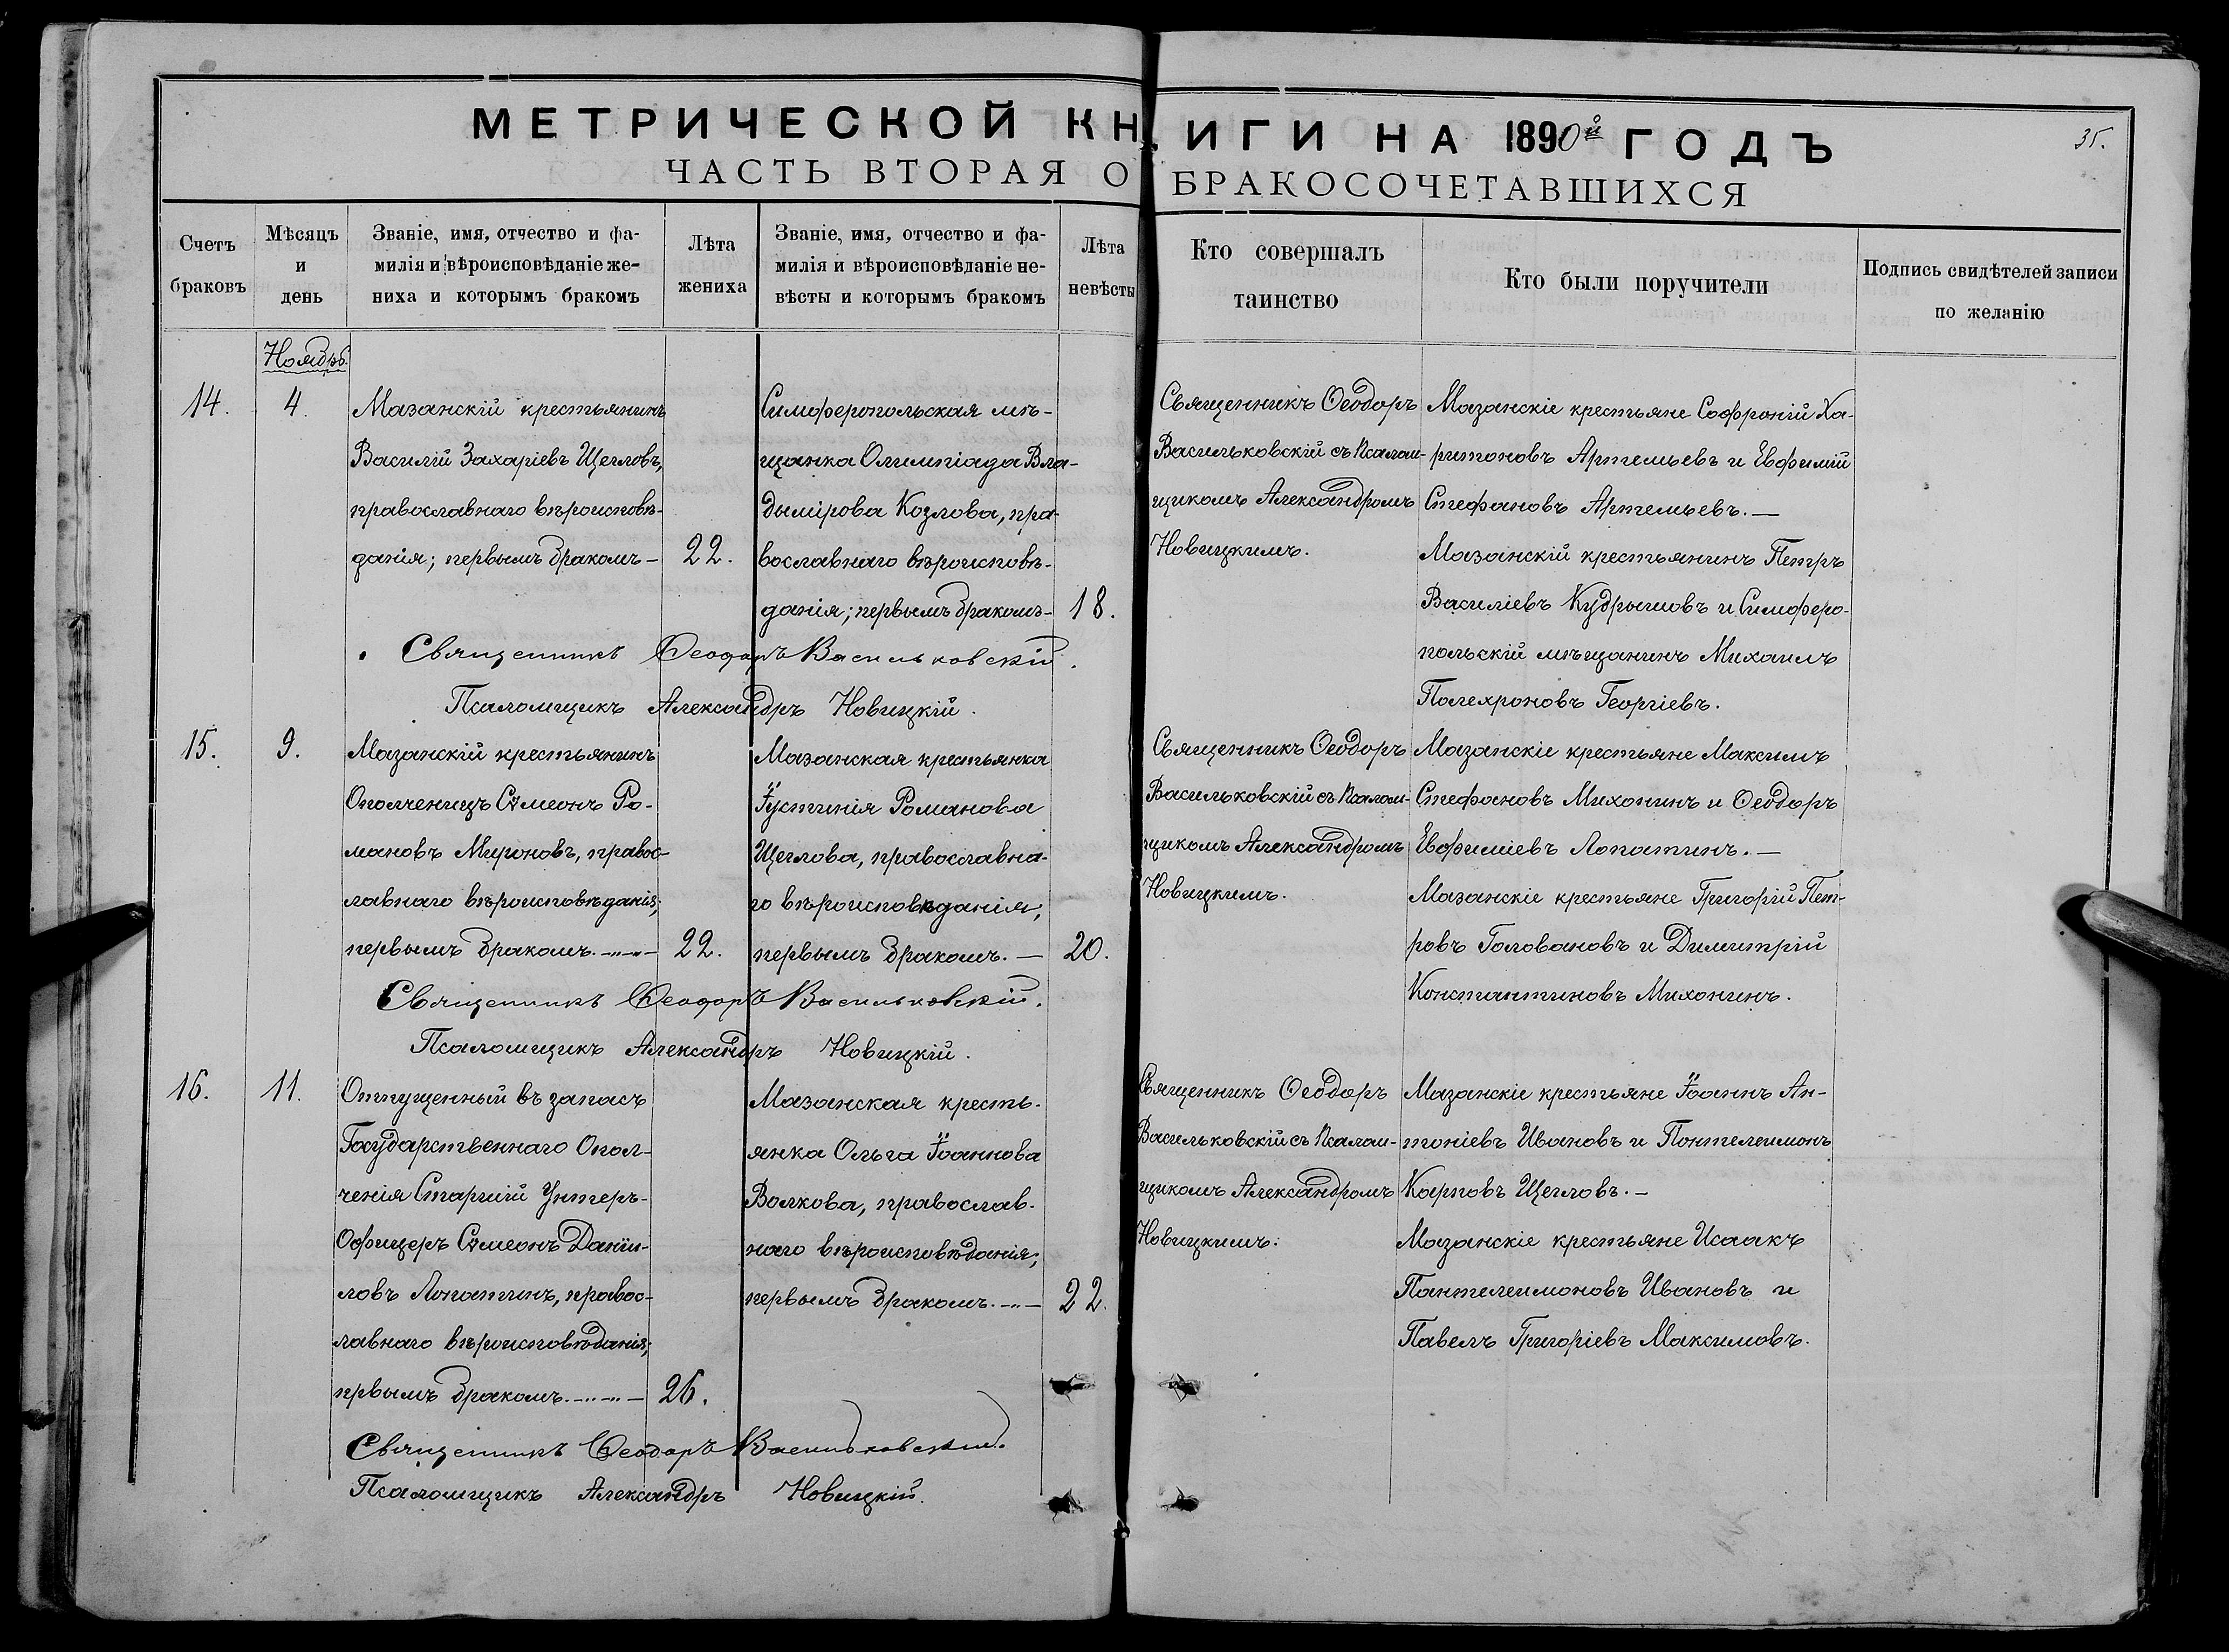 МЕТРИЧЕСКОЙ КНИГИ НА 1890й ГОДЪ
35.
ЧАСТЬ ВТОРАЯ О БРАКОСОЧЕТАВШИХСЯ
Счетъ
браковъ
Мѣсяцъ
и
день
Званіе, имя, отчество и фа-
милія и вѣроисповѣданіе же-
ниха и которымъ бракомъ
Лѣта
жениха
Званіе, имя, отчество и фа-
милія и вѣроисповѣданіе не-
вѣсты и которымъ бракомъ
Лѣта
невѣсты
Кто совершалъ
таинство
Кто были поручители
Подпись свидѣтелей записи
по желанію
Ноябрь
14.
4.
Мазанскій крестьянинъ
Василій Захаріевъ Щегловъ,
православнаго вѣроисповѣ-
данія; первымъ бракомъ —
22.
Симферопольская мѣ-
щанка Олимпіада Вла-
диміровa Козлова, пра-
вославнаго вѣроисповѣ-
данія; первымъ бракомъ-
18.
Священникъ Ѳеодоръ
Васильковскій съ Псалом-
щикомъ Александромъ
Новицкимъ.
Мазанскіе крестьяне Софроній Ха-
ритоновъ Артемьевъ и Евфимій
Стефановъ Артемьевъ. —
Мазанскій крестьянинъ Петръ
Василіевъ Кудрышовъ и Симферо-
польскій мѣщанинъ Михаилъ
Полехроновъ Георгіевъ.
Священникъ Ѳеодоръ Васильковскій.
Псаломщикъ Александръ Новицкій.
15.
9.
Мазанскій крестьянинъ
Ополченецъ Сѵмеонъ Ро-
мановъ Мироновъ, правос-
лавнаго вѣроисповѣданія;
первымъ бракомъ. —
22.
Мазанская крестьянка
Іустинія Романова
Щеглова, православна-
го вѣроисповѣданія,
первымъ бракомъ. —
20.
Священникъ Ѳеодоръ
Васильковскій съ Псалом-
щикомъ Александромъ
Новицкимъ.
Мазанскіе крестьяне Максимъ
Стефановъ Михонинъ и Ѳеодоръ
Евфиміевъ Лопатинъ. —
Мазанскіе крестьяне Григорій Пет-
ровъ Головановъ и Димитрій
Константиновъ Михонинъ.
Священникъ Ѳеодоръ Васильковскій.
Псаломщикъ Александръ Новицкій.
16.
11.
Отпущенный въ запасъ
Государственнаго Опол-
ченія Старшій Унтеръ-
Офицеръ Сѵмеонъ Даніи-
ловъ Лопатинъ, правос-
лавнаго вѣроисповѣданія;
првымъ бракомъ. —
26.
Мазанская кресть-
янка Ольга Іоаннова
Волкова, православ-
наго вѣроисповѣданія;
первымъ бракомъ. —
22.
Священникъ Ѳеодоръ
Васильковскій съ Псалом-
щикомъ Александромъ
Новицкимъ.
Мазанскіе крестьяне Іоаннъ Ан-
тоніевъ Ивановъ и Пантелеимонъ
Карповъ Щегловъ. —
Мазанскіе крестьяне Исаакъ
Пантелеимоновъ Ивановъ и
Павелъ Григоріевъ Максимовъ.
Священникъ Ѳеодоръ Васильковскій.
Псаломщикъ Александръ Новицкій.